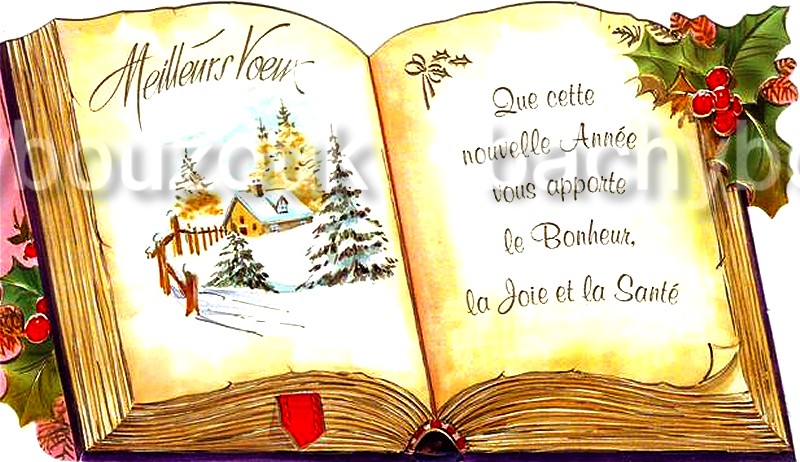 Meilleurs Voeux
Que cette
nouvelle Année
vous apporte
le Bonheur,
la Joie et la Santé
bouzouk bachybo